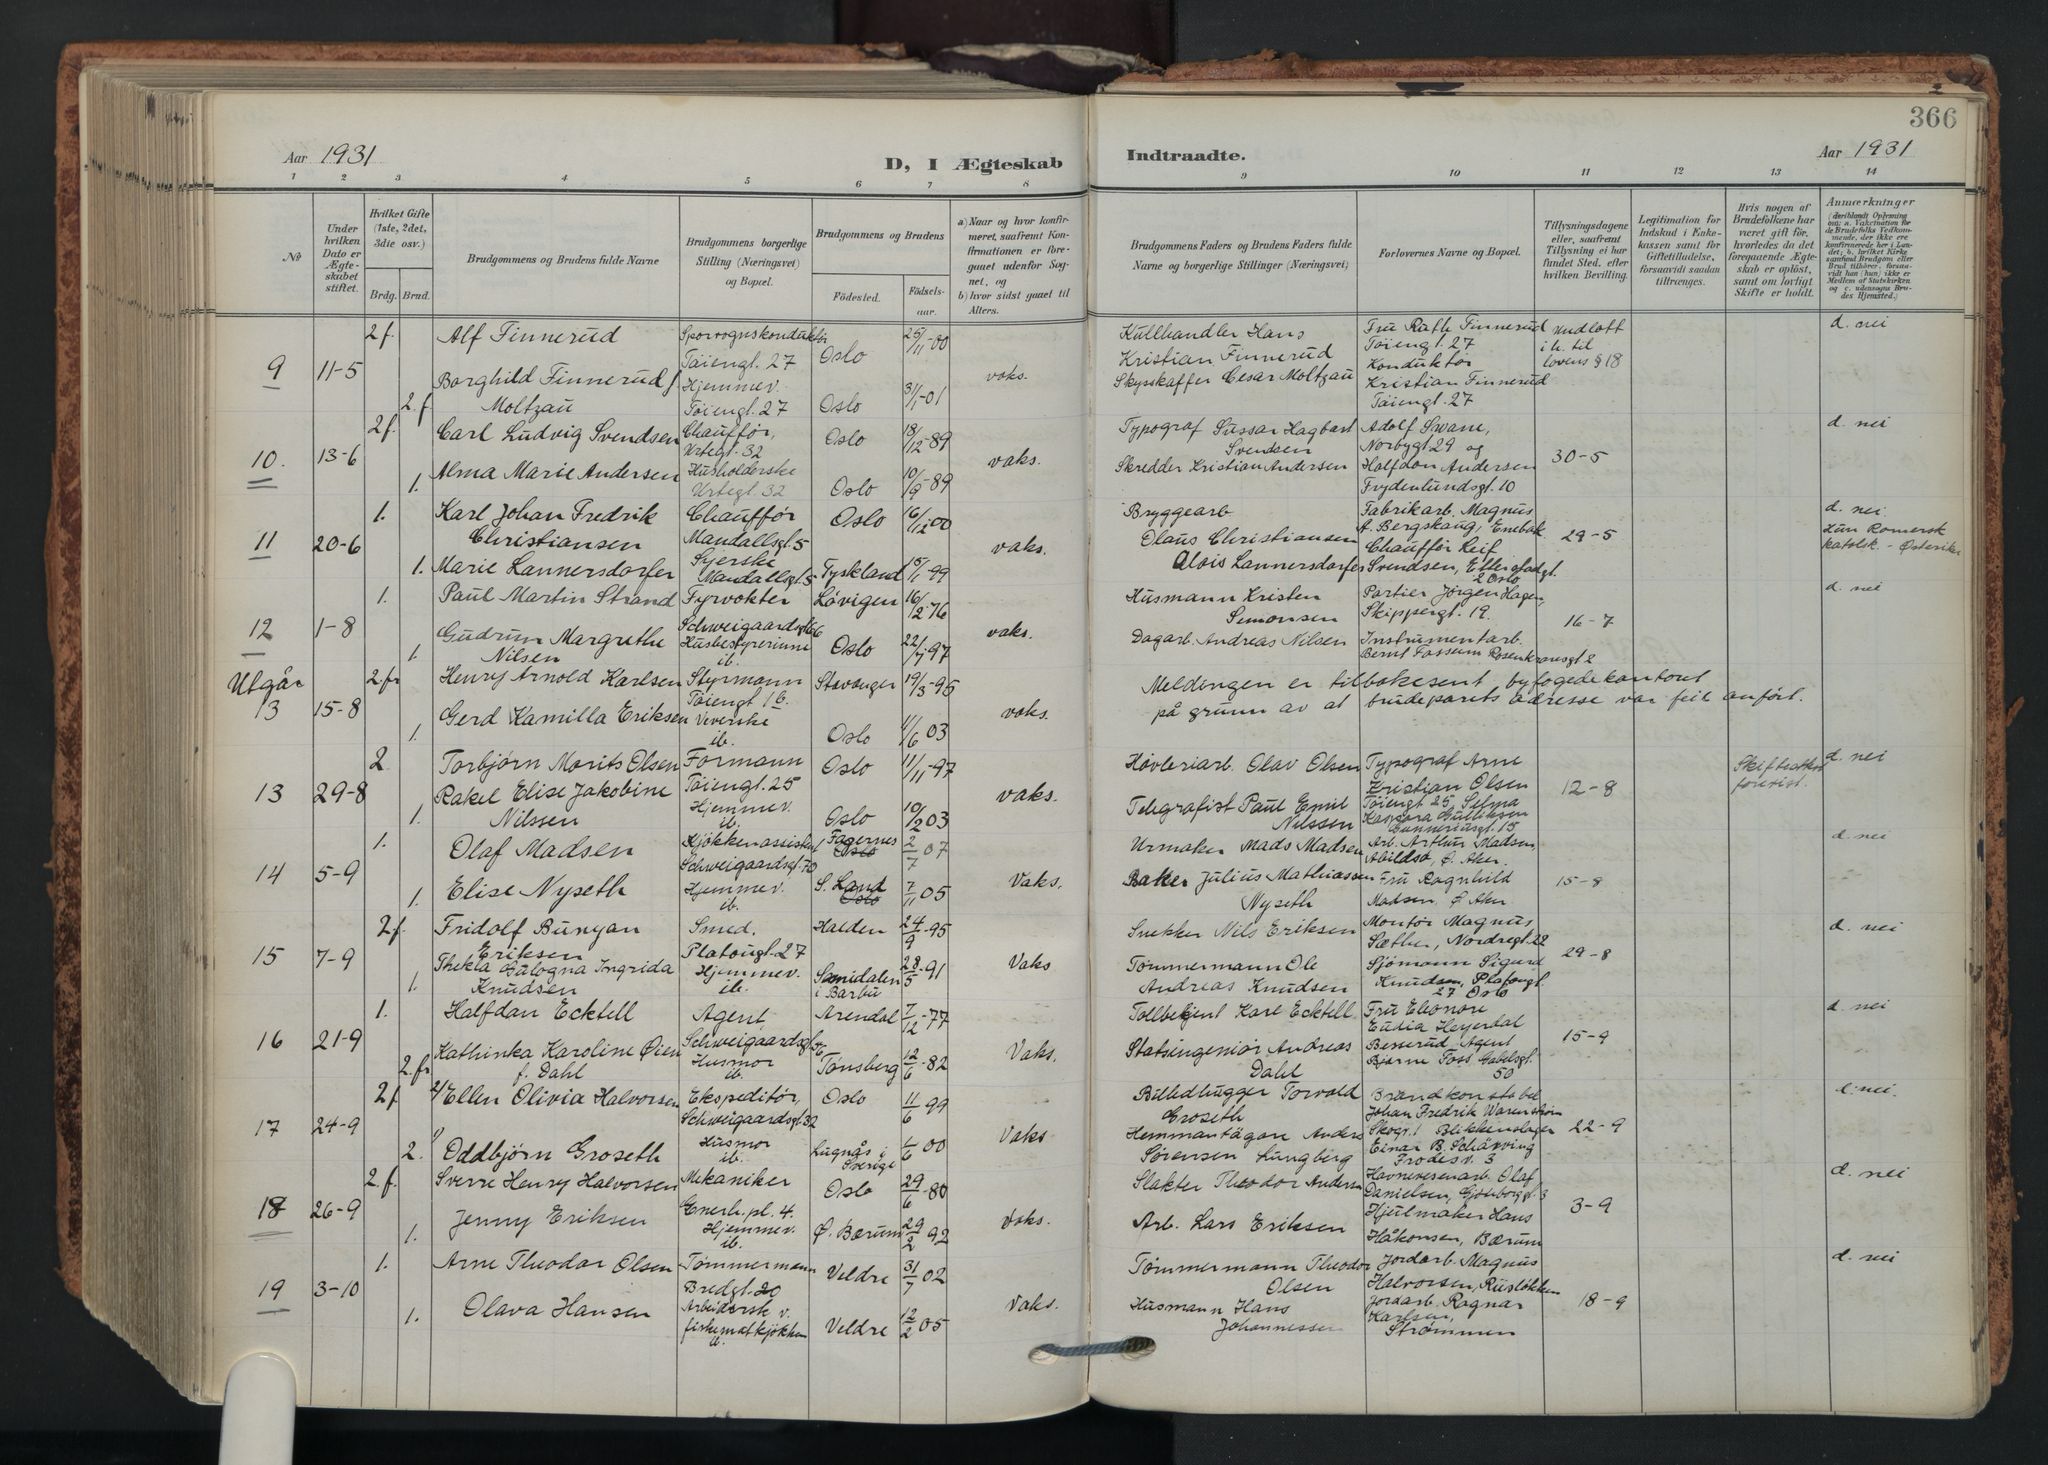 366
Aar 1931
D, I Ægteskab
Indtraadte.
Aar 1931
1 2 3 4 5 6 7 8 9 10 11 12 13 14
No
Under hvilken Dato er Ægteskabet stiftet.
Hvilket Gifte (1ste, 2det, 3die osv.)
Brdg. Brud.
Brudgommens og Brudens fulde Navne
Brudgommens borgerlige Stilling (Næringsvei) og Bopæl.
Brudgommens og Brudens
Födested.
Födselsaar.
a) Naar og hvor konfirmeret, saafremt Konfirmationen er foregaaet udenfor Sognet, og
b) hvor sidst gaaet til Alters.
Brudgommens Faders og Brudens Faders fulde Navne og borgerlige Stillinger (Næringsvei)
Forlovernes Navne og Bopæl.
Tillysningsdagene eller, saafremt Tillysning ei har fundet Sted, efter hvilken Bevilling.
Legitimation for Indskud i Enkekassen samt for Giftetilladelse, forsaavidt saadan tiltrænges.
Hvis nogen af Brudefolkene har været gift før, hvorledes da det foregaaende Ægteskab er oplöst, samt om lovligt Skifte er holdt.
Anmærkninger
9 11-5
2 f. Alf Finnerud
Sporvognskonduktør
Tøiengt. 27
Oslo 25/11-00
2. f. Borghild Finnerud f.
Moltzau
Hjemmev.
Tøiengt. 27
Oslo 3/1-01
vaks.
Kullhandler Hans
Kristian Finnerud
Skysskaffer Cesar Moltzau
Fru Ruth Finnerud
Tøiengt. 27
Konduktør
Kristian Finnerud
Tøiengt. 27
undlatt
i h. til
lovens § 18
d. nei
10. 13-6
2 f. Carl Ludvig Svendsen
Chauffør,
Urtegt. 32
Oslo 18/12-89
1. Alma Marie Andersen
Husholderske
Urtegt. 32
Oslo 10/9-89
vaks.
Typograf Hagbart
Svendsen
Skredder Kristian Andersen
Adolf Swane,
Norbygt 29 og
Halfdan Andersen
Frydenlundsgt. 10
30-5
d. nei
11 20-6
1. Karl Johan Fredrik
Christiansen
Chauffør
Mandallsgt. 5
Oslo 16/12 00
1. Marie Lannersdorfer
Syerske
Mandallsgt. 5
Tyskland 15/1-99
vaks.
Bryggearb
Olaus Christiansen
Alois Lannersdorfer
Fabrikarb. Magnus
A. Bergskaug, Enebak
Chauffør Leif
Svendsen,
2 Oslo
29-5
d. nei
Hun Romersk
katolsk. - Østerike
12 1-8
1. Paul Martin Strand
Fyrvokter
Schweigaardsgt 66
Løvigen 16/2-76
1. Gudrun Margrethe
Nilsen
Husbestyrerinne
ib.
Oslo 22/7-97
vaks.
Husmann Kristen
Simonsen
Dagarb. Andreas Nilsen
Portier Jörgen Hagen,
Skippergt. 19.
Instrumentarb.
Bernt Fossum Rosenkransgt 2
16-7
d. nei
Utgår
13 15-8
2. fr Henry Arnold Karlsen
Styrmann
Tøiengt 16.
Stavanger 19/3-95
1. Gerd Kamilla Eriksen
Veverske
ib.
Oslo 11/6 03
vaks.
Meldingen er tilbakesent byfogedekontoret
på grunn av at brudeparets adresse var feil anført.
13 29-8
2 Torbjørn Morits Olsen
Formann
Tøiengt. 25
Oslo 11/11-97
1. Rakel Elise Jakobine
Nilssen
Hjemmev.
ib.
Oslo 10/2 03
vaks.
Høvleriarb. Olav Olsen
Telegrafist Paul Emil
Nilssen
Typograf Arne
Kristian Olsen
Tøiengt 25 Selma
Kaspara Gulliksen
Gunneriusgt. 15
12-8
Skifteattest
forevist.
d. nei
14 5-9
1. Olaf Madsen
Kjøkkenassistent
Schweigaardsgt. 70
Fagernes
Oslo
2/7 07
1. Elise Nyseth
Hjemmev.
ib.
S. Land
Oslo
7/11 05
Vaks.
Urmaker Mads Madsen
Baker Julius Mathiassen
Nyseth
Arb. Arthur Madsen
Abildsø, Ø. Aker.
Fru Ragnhild
Madsen. Ø. Aker
15-8
d. nei
15 7-9
2 f. Fridolf Bunyan
Eriksen
Smed.
Platougt. 27
Halden 24/9-95
1. Thekla Gulogna Ingrida
Knudsen
Hjemmev.
ib.
Songdalen
i Barbu
28/5-91
Vaks
Snekker Nils Eriksen
Tømmermann Ole
Andreas Knudsen
Montør Magnus
Sæther, Nordregt. 22
Sjømann Sigurd
Knudsen, Platougt.
27 Oslo
29-8
d. nei
16 21-9
1. Halfdan Ecktell
Agent
Schweigaardsgt. 56
Arendal 7/12-77
2. fr Kathinka Karoline Øien
f. Dahl
Husmor
ib.
Tønsberg 12/6-82
Vaks.
Tollbetjent Karl Ecktell
Statsingeniør Andreas
Dahl
Fru Eleonore
Eudia Heyerdal
Besserud, Agent
Bjarne Foss Gabelsgt.
50
15-9
d. nei
17 24-9
2 f. 2/ Ellen Olivia Halvorsen
Ekspeditør,
Schweigaardsgt 32
Oslo 11/6 99
2. 1/ Oddbjørn Groseth
Husmor
ib.
Lugnås i
Sverige
1/6 00
Vaks
Billedhugger Torvald
Groseth
Hemmantägare Anders
Sørensen Lungberg
Brandkonstabel
Johan Fredrik Warenstrøm
Skogv. 1 Blikkenslager
Einar B. Schärving
Frodesv. 3
22-9
d. nei.
18 26-9
2. f. Sverre Henry Halvorsen
Mekaniker
Enerh. pl. 4.
Oslo 29/6-80
1. Jenny Eriksen
Hjemmev.
ib.
Ø. Bærum 29/2 92
Vaks.
Slakter Theodor Andersen
Arb. Lars Eriksen
Havnevesenarb. Olaf
Danielsen, Gjøviksgt. 3
Hjulmaker Hans
Håkonsen, Bærum
3-9
d. nei
19 3-10
1. Arne Theodor Olsen
Tømmermann
Bredgt. 20
Veldre 31/7 02
1. Olava Hansen
Arbeidersk v.
fiskematkjøkken
ib.
Veldre 12/2 05
Vaks.
Tømmermann Theodor
Olsen
Husmann Hans
Johannessen
Jordarb. Magnus
Halvorsen, Rusløkken
Jordarb. Ragnar
Karlsen,
Strømmen
18-9
d. nei